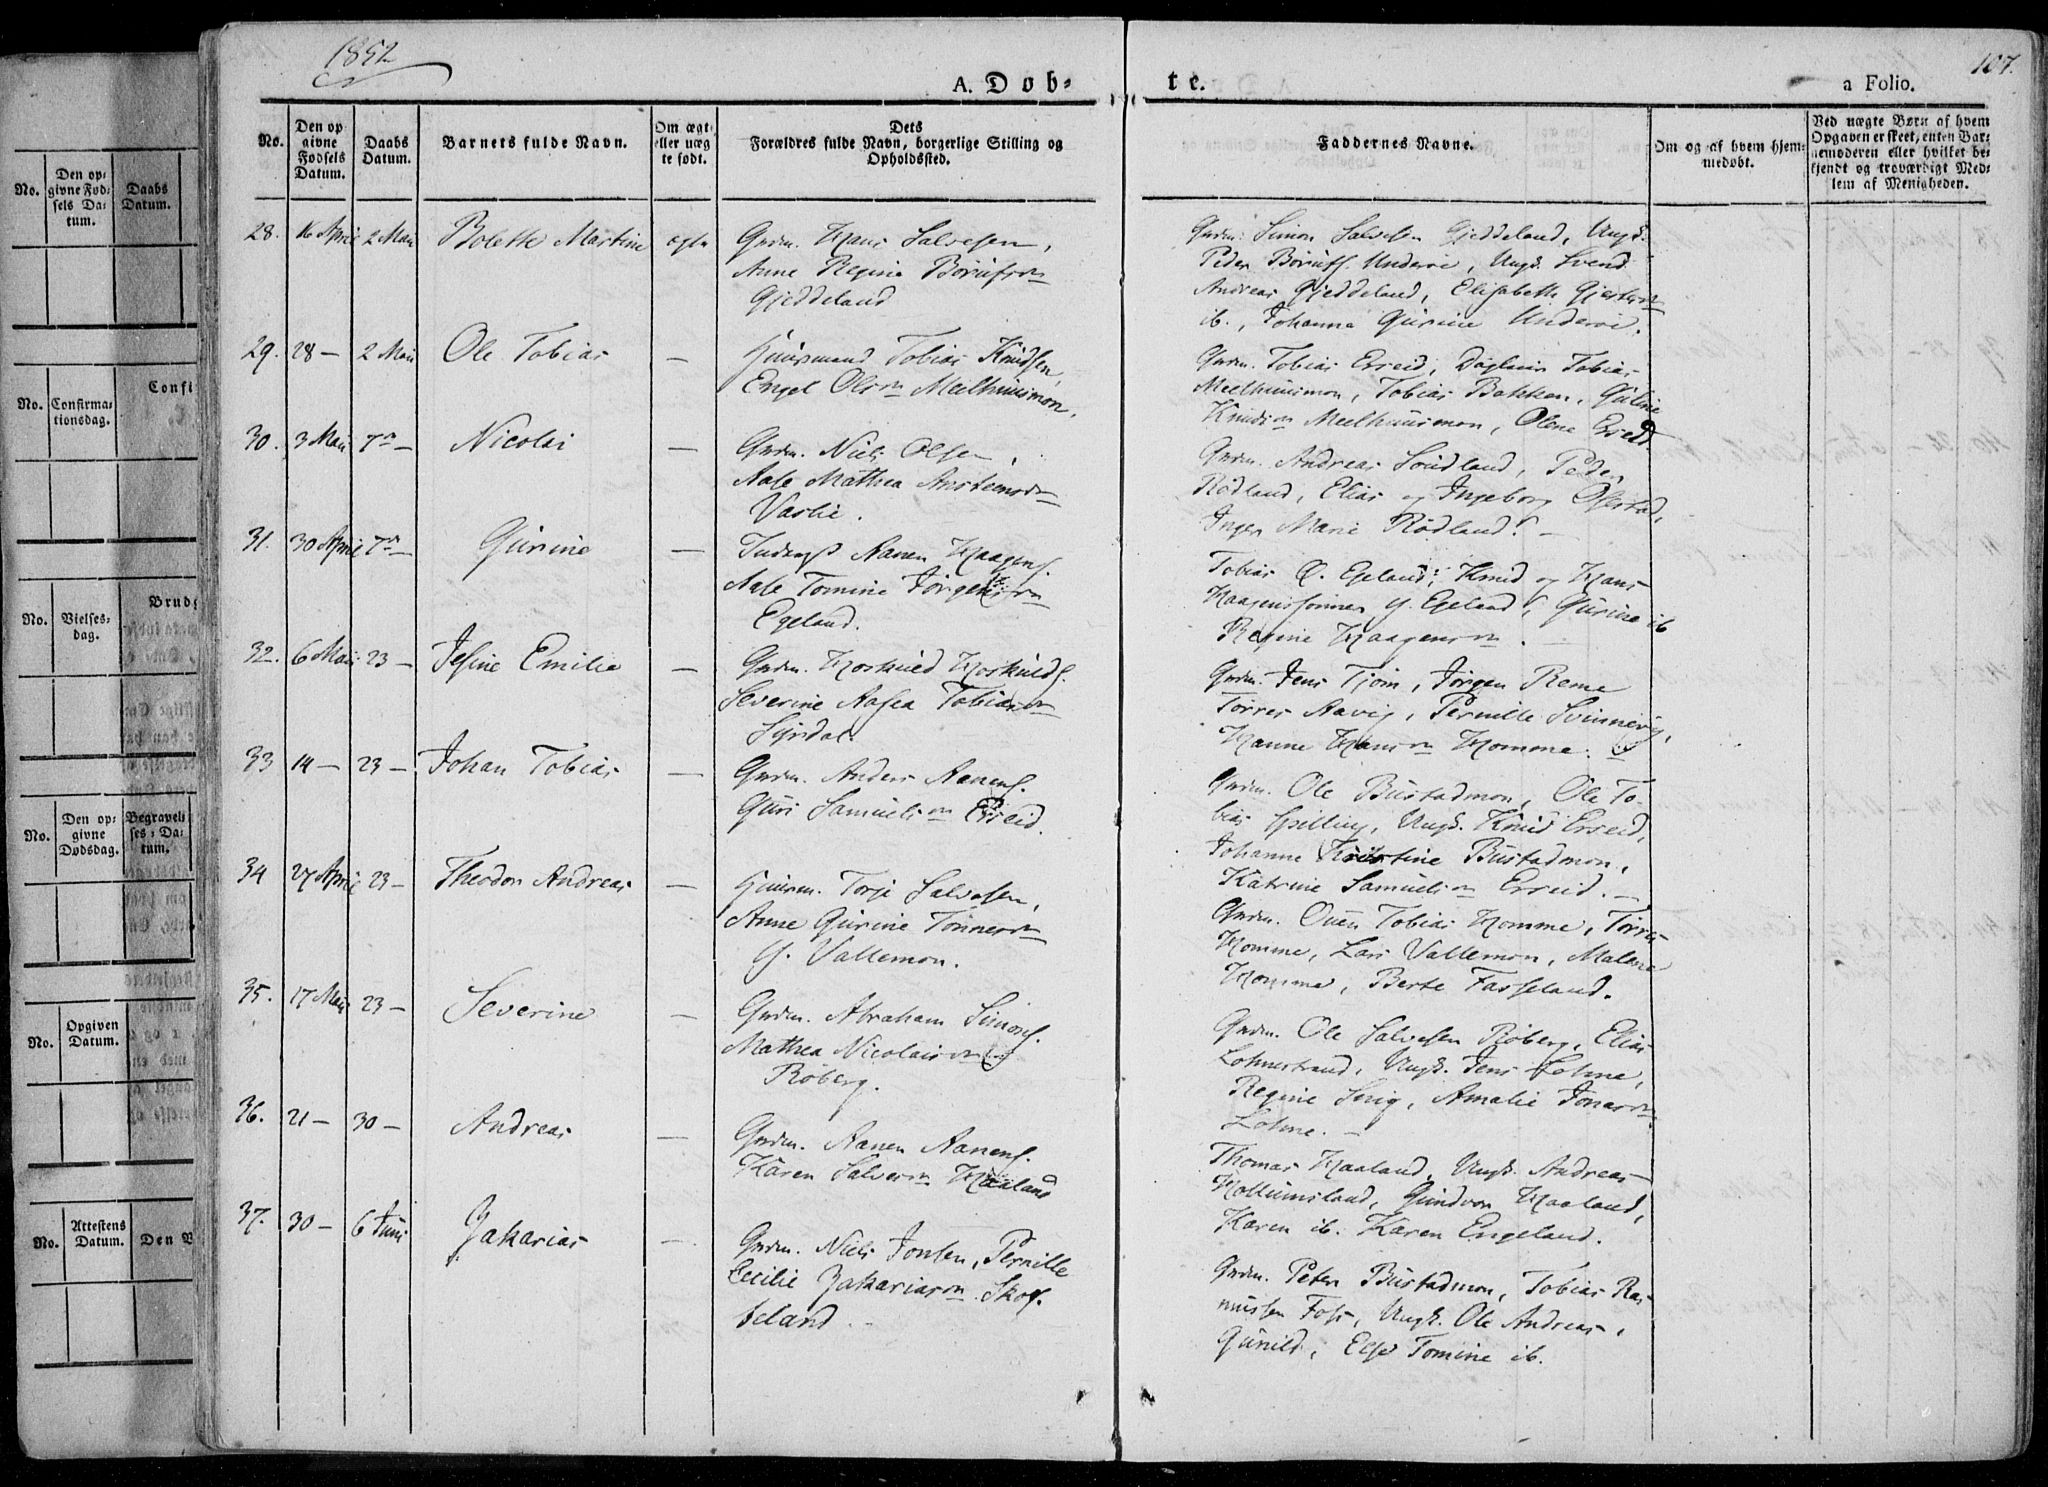 1852
107.
A. Døb-
te.
a Folio.
No.
Den op
givne
Fødsels
Datum.
Daabs
Datum.
Barnets fulde Navn.
Om ægt
eller uæg
te født.
Dets
Forældres fulde Navn, borgerlige Stilling og
Opholdssted.
Faddernes Navne.
Om og af hvem hjem-
medøbt.
Ved uægte Børn af hvem
Opgaven er skeet, enten Bar-
nemoderen eller hvilket be-
kjendt og troværdigt Med-
lem af Menigheden.
28. 16 April 2 Mai Bolette Martine ægte
Grdm. Hans Salvesen,
Anne Regine Börüfsr
Gjeddeland
Grdm. Simon Salvesen Gjeddeland, Ungk.
Peder Börufs. Underöe, Ungk. Svend
Andreas Gjeddeland, Elisabeth
ib., Johanna Gürine Underöe.
29. 28 — 2 Mai Ole Tobias —
Huusmand Tobias Knüdsen,
Engel Olsr Meelhuusmon.
Grdm. Tobias Erseid, Tobias
Meelhuusmon, Tobias Bakken, Guline
Knudsr Meelhuusmon, Olene Erseid
30. 3 Mai 7n — Nicolai —
Grdm. Niels Olsen,
Aase Mathea Anstensdr
Vaslie.
Grdm. Andreas Soudland, Peder
Rödland, Elias og Ingeborg Ofstad,
Inger Marie Rödland. —
31. 30 April 7n — Gürine —
Inderst Aanen Haagens.
Aase Tomine Jörgensr
Egeland.
Tobias O. Egeland, Knud og Hans
Haagenssönner Egeland, Gürine ib
Regine Haagensr. —
32. 6 Mai 23 — Jesine Emilie —
Grdm. Hoskuld Hoskulds.
Severine Aasea Tobiasr
Syrdal
Grdm. Jens Tjom, Jörgen Reme
Torres Aavig, Pernille Svinnevig,
Hanne Hansr Homme.
33 14 — 23 — Johan Tobias —
Grdm. Anders Aanens.
Guri Samuelsr Erseid.
Grdm. Ole Büstadmon, Ole To-
bias Spilling, Ungk. Knud Erseid,
Johanne Kirstine Büstadmon,
Katrine Samuelsr Erseid. —
34 27 April 23 — Theodor Andreas —
Huusm. Torje Salvesen,
Anne Gürine Tönnesr
Vallemon.
Grdm. Ouen Tobias Homme, Torres
Homme, Lars Vallemon, Malene
Homme, Berte Fasseland.
35. 17 Mai 23 — Severine —
Grdm. Abraham Simons.
Mathea Nicolaisr
Röberg.
Grdm. Ole Salvesen Röberg, Elias
Lohnestrand, Ungk. Jens Lohne,
Regine Amalie Jonasr
Lohne. —
36. 21 — 30 — Andreas —
Grdm. Aanen Aanens.
Karen Salvesr Haaland
Thomas Haaland, Ungk. Andreas
Hollumsland, Gundvor Haaland,
Karen ib. Karen Engeland.
37. 30 — 6 Juni Zakarias —
Grdm. Niels Jonsen, Pernille
Cecilie Zakariasr Skof-
teland
Grdm. Peter Büstadmon, Tobias Ras-
mussen Foss, Ungk. Ole Andreas,
Gunild, Else Tomine ib.
No.
Den op-
givne Fød-
sels Da-
tum.
Daabs
Datum.
Confi
No.
Confirma-
tionsdag.
Brudg
No.
Vielses-
dag.
No.
Den op-
givne
Dødsdag.
Begravel-
ses-Da-
tum.
No.
Opgiven
Datum.
No.
Attestens
Datum.
Den B